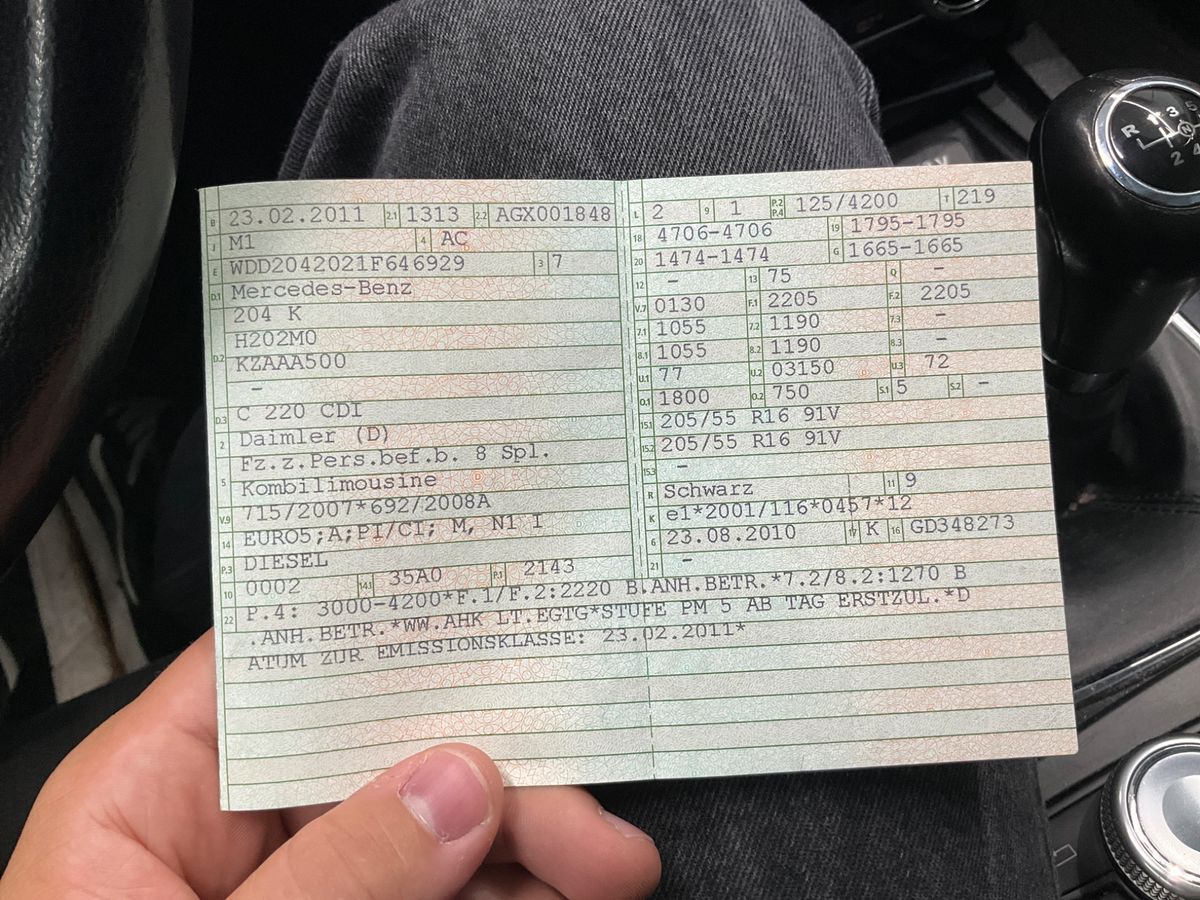 B 23.02.2011 2.1 1313 2.2 AGX001848
J M1 4 AC
E WDD2042021F646929 3 7
D.1 Mercedes-Benz
204 K
D.2 H202M0
KZAAA500
–
D.3 C 220 CDI
2 Daimler (D)
5 Fz.z.Pers.bef.b. 8 Spl.
Kombilimousine
V.9 715/2007*692/2008A
14 EURO5;A;PI/CI; M, N1 I
P.3 DIESEL
10 0002 14.1 35A0 P.1 2143
L 2 9 1 P.2 P.4 125/4200 T 219
18 4706-4706 19 1795-1795
20 1474-1474 G 1665-1665
12 – 13 75 Q –
V.7 0130 F.1 2205 F.2 2205
7.1 1055 7.2 1190 7.3 –
8.1 1055 8.2 1190 8.3 –
U.1 77 U.2 03150 U.3 72
O.1 1800 O.2 750 S.1 5 S.2 –
15.1 205/55 R16 91V
15.2 205/55 R16 91V
15.3 –
R Schwarz 11 9
K e1*2001/116*0457*12
6 23.08.2010 17 K 16 GD348273
21 –
22 P.4: 3000-4200*F.1/F.2:2220 B.ANH.BETR.*7.2/8.2:1270 B
.ANH.BETR.*WW.AHK LT.EGTG*STUFE PM 5 AB TAG ERSTZUL.*D
ATUM ZUR EMISSIONSKLASSE: 23.02.2011*
R 1 3 5
N
2 4